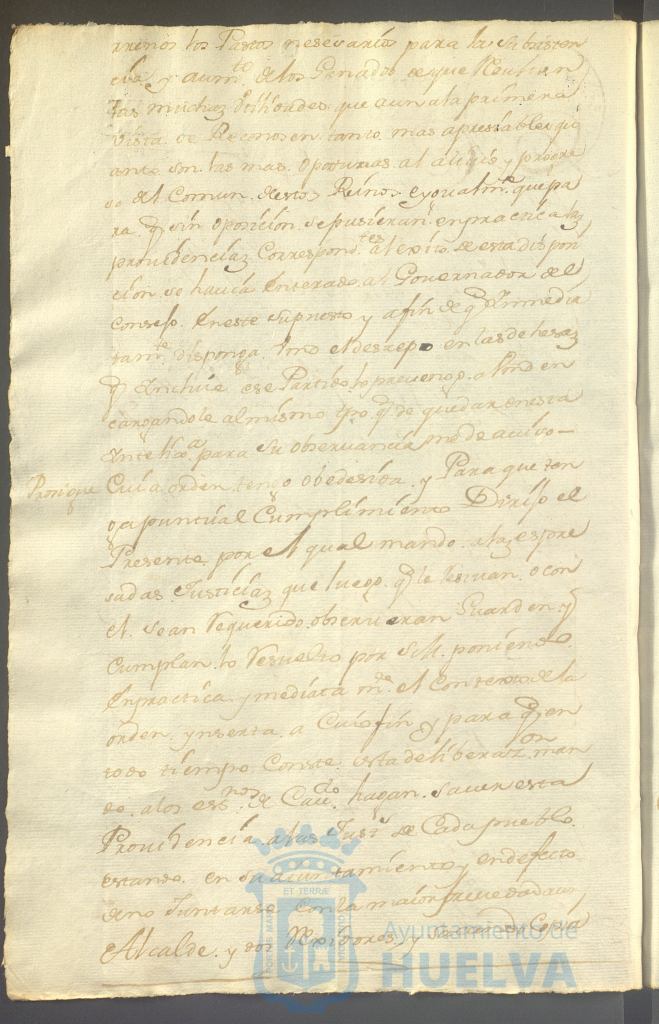 rrenos los Pastos nesesarios para la subsisten
cia y aumto. de los Ganados de que Resultan
tas muchas utilidades que aun a la primera
vista se Reconosen tanto mas apresiables qto
anto son las mas oportunas al alivio y progre
so del Comun destos Reinos e ygualmte. que pa
ra q sin oposision se pusieran en practica las
providencias Correspondtes. al exito de esta dispoci
cion se havia Enterado al Governador del
Consejo. En este supuesto y a fin de q Inmedia
tamte. disponga Vmd. el desrepo en las dehesas
q Incluie ese Partido lo prevengo a Vmd en
cargandole al mismo tpo. q de quedar en esta
Intelixa. para su observancia me de aviso
Prosigue
Cuia orden tengo obedesida y Para que ten
ga puntual Cumplimiento Dirijo el
Presente por el qual mando a las espre
sadas Justicias que luego q le resivan o con
el sean Requeridos observeran Guarden y
Cumplan lo Resuelto por S.M. poniendo
En practica ymediata mte. el Contexto de la
orden ynserta a Cuio fin y para q en
todo tiempo Conste esta deliberazon. man
do a los essnos. de Cavdo. hagan saver esta
Providencia a las Justs. de Cada pueblo
estando en su aiuntamiento y en defecto
de no Juntarse Con la maior brevedad a un
Alcalde y dos Rexidores y sacando Copia
ET TERRÆ
PORTUS MARIS
Ayuntamiento de
HUELVA